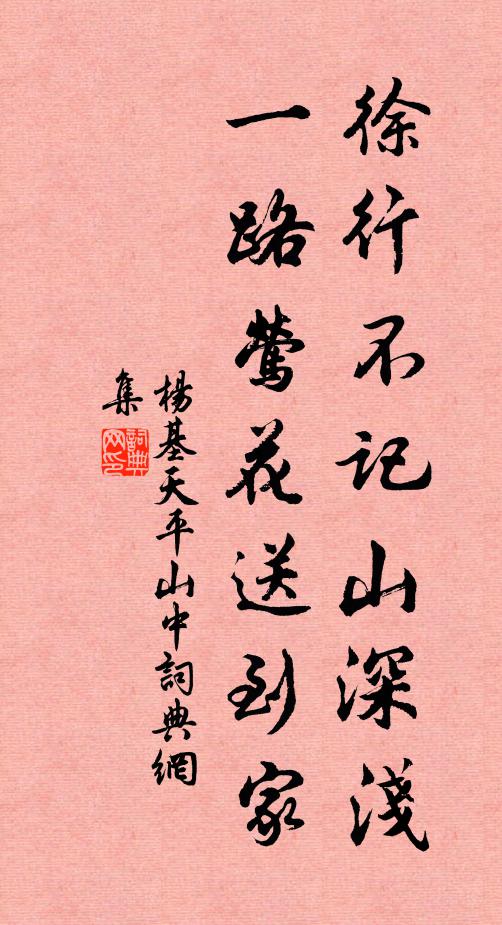 徐行不记山深淺
一路莺花送到家
楊基天平山中詞典網
集
詞典网印